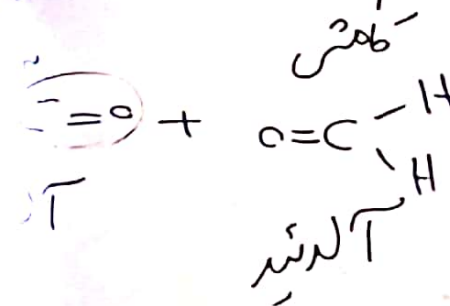 کاهش
=O + O=C
H
H
آلدئید